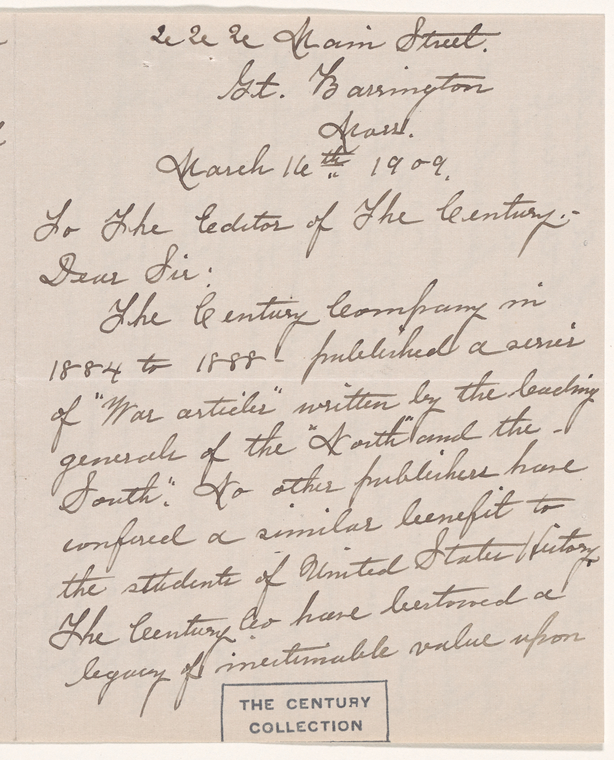 222 Main Street.
Gt. Barrington
Mass.
March 16th 1909.
To The Editor of The Century:-
Dear Sir:
The Century Company in
1884 to 1888 - published a series
of "War articles" written by the leading
generals of the "North" and the -
South". No other publishers have
confered a similar benefit to
the students of United States History
The Century Co have bestowed a
legacy of inestimable value upon
THE CENTURY
COLLECTION